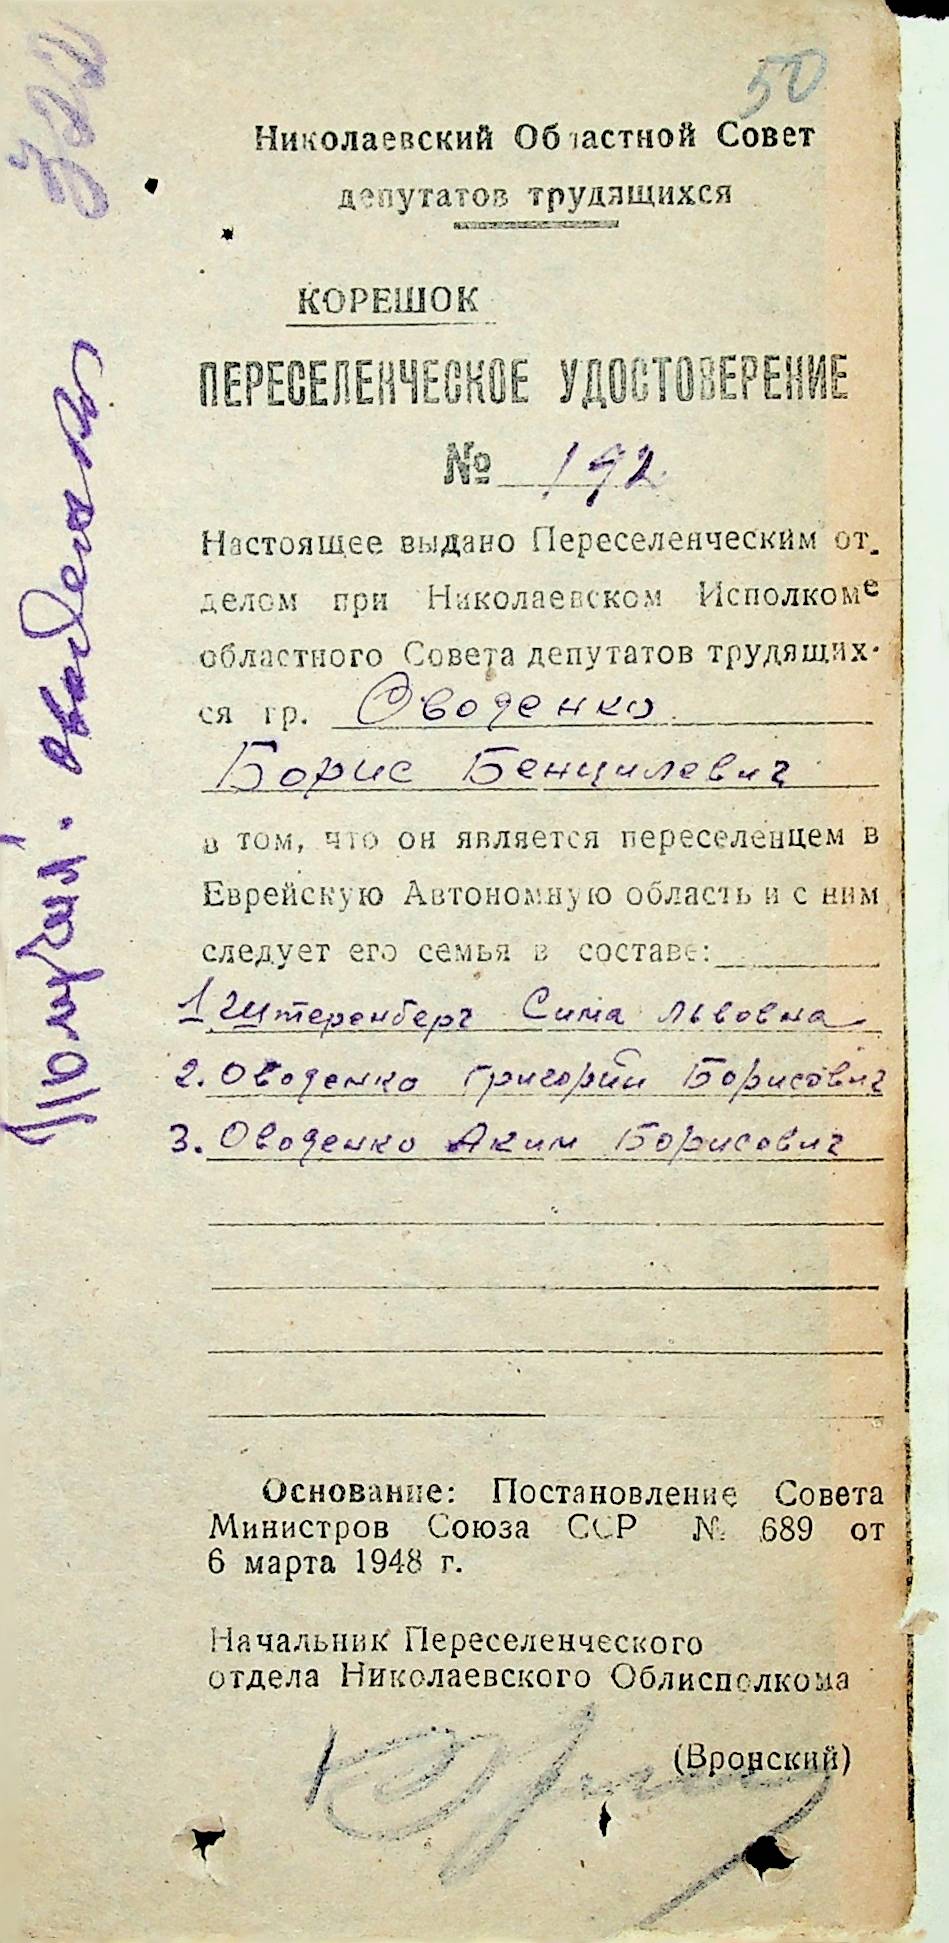 50
322
Николаевский Областной Совет
депутатов трудящихся
КОРЕШОК
ПЕРЕСЕЛЕНЧЕСКОЕ УДОСТОВЕРЕНИЕ
№ 192
Настоящее выдано Переселенческим от-
делом при Николаевском Исполкоме
областного Совета депутатов трудящих-
ся гр. Оводенко
Борис Бенцилевич
в том, что он является переселенцем в
Еврейскую Автономную область и с ним
следует его семья в составе:
1 Штеренберг Сима Львовна
2. Оводенко Григорий Борисович
3. Оводенко Аким Борисович
Основание: Постановление Совета
Министров Союза ССР № 689 от
6 марта 1948 г.
Начальник Переселенческого
отдела Николаевского Облисполкома
(Вронский)
Получил.